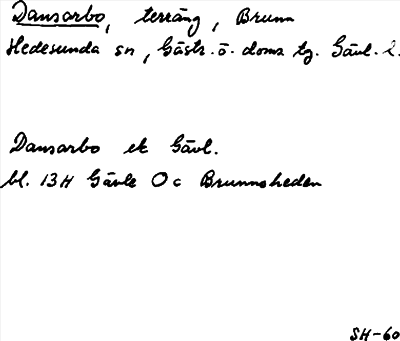 Dansarbo, terräng, Brunn
Hedesunda sn, Gästr. ö. doms tg. Gävl. l.
Dansarbo ek Gävl.
bl. 13H Gävle 0 c Brunnsheden
SH-60